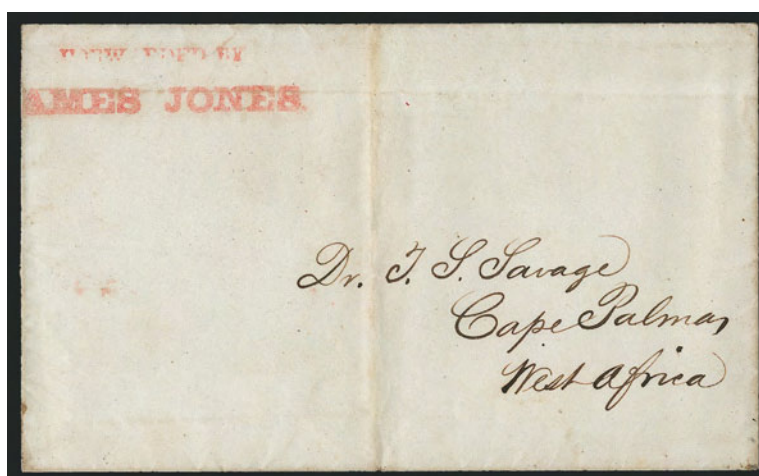 AMES JONES
Dr. T. S. Savage
Cape Palmas
West Africa